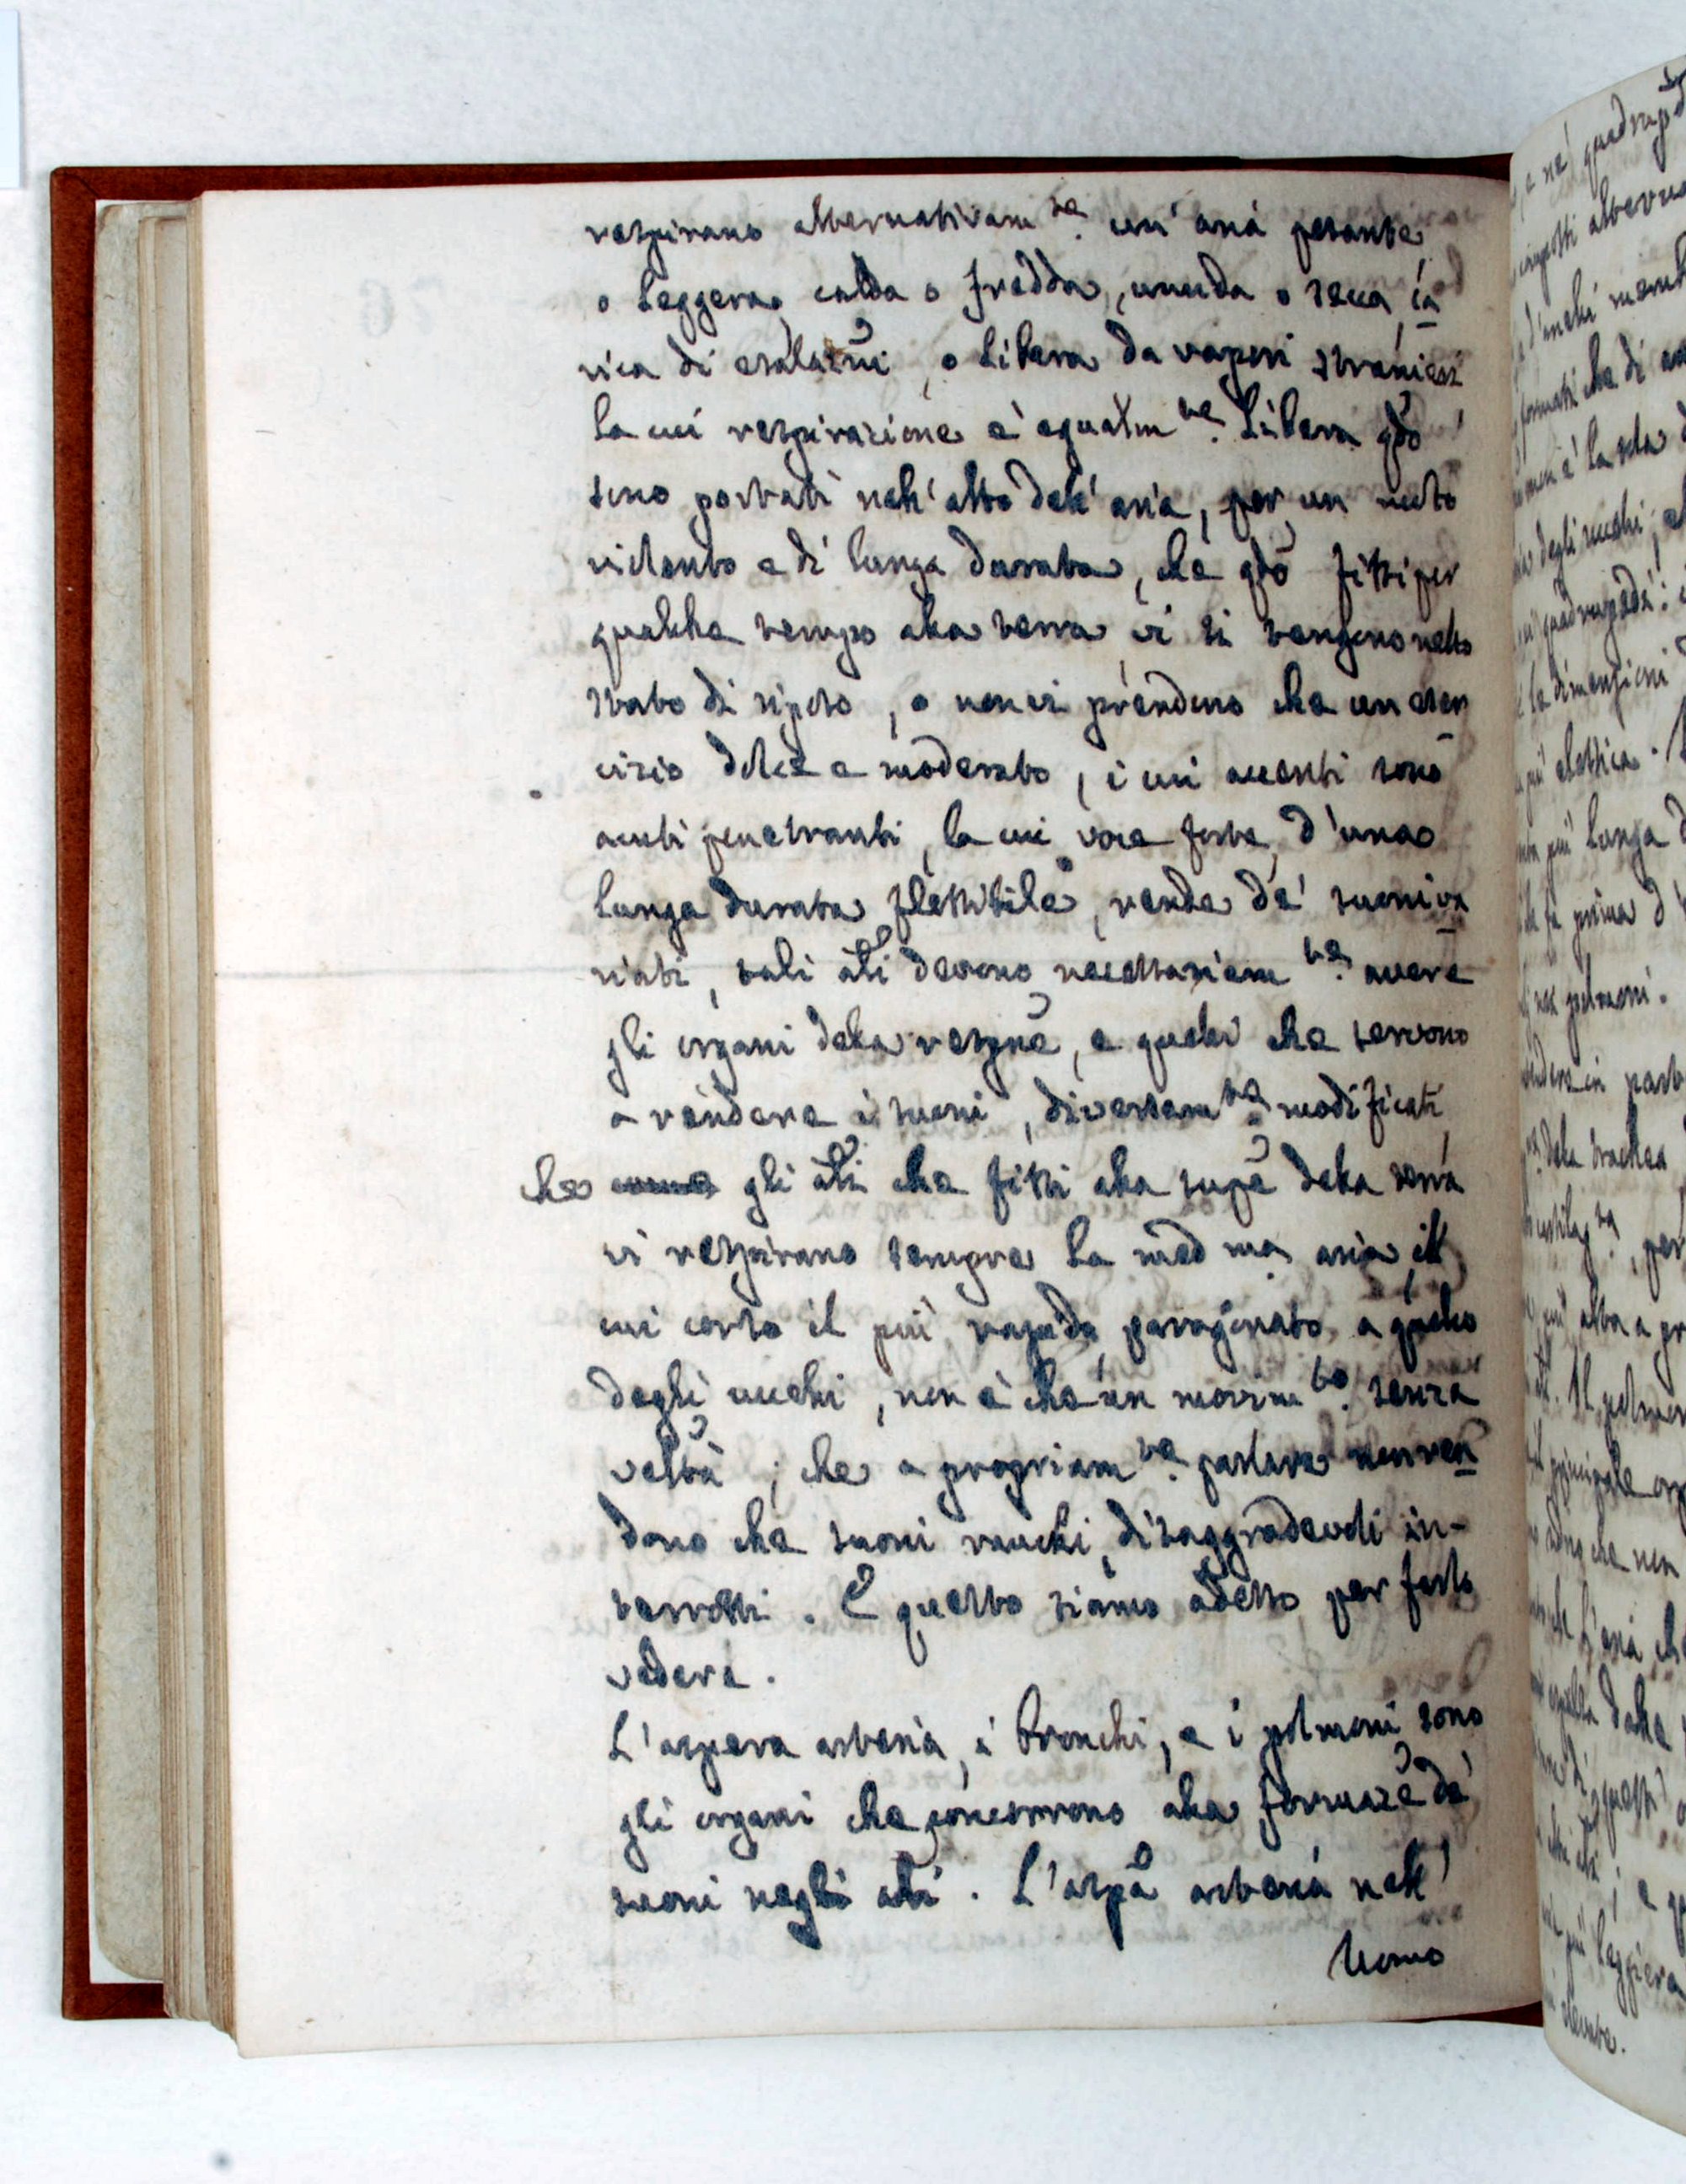 respirano alternativam.te un' aria pesante
o leggera, calda o fredda, umida o secca ca
rica di esalazni, o libera da vapori stranieri
la cui respirazione è egualm.te libera qdo
sono portati nell' alto dell' aria, per un moto
violento e di lunga durata, che qdo fissi per
qualche tempo alla terra vi si tengono nello
stato di riposo, o non vi prendono che un eser
cizio dolce e moderato, i cui accenti sono
acuti penetranti, la cui voce forte, d'una
lunga durata flessibile, rende de' suoni va
riati, tali ali devono necessariam.te avere
gli organi della respne, e quelli che servono
a rendere i suoni, diversam.te modificati
che gli ali che fissi alla supe della terra
vi respirano sempre la med ma aria, il
cui corso il più rapido, paragonato a quello
degli uccelli, non è che un movim.to senza
veltà; che a propriam.te parlare non ren
dono che suoni rauchi, disaggradevoli in-
terrotti. E questo siamo adesso per farlo
vedere.
L'aspera arteria, i bronchi, e i polmoni sono
gli organi che concorrono alla formaze de'
suoni negli ali. L'aspa arteria nell'
Uomo